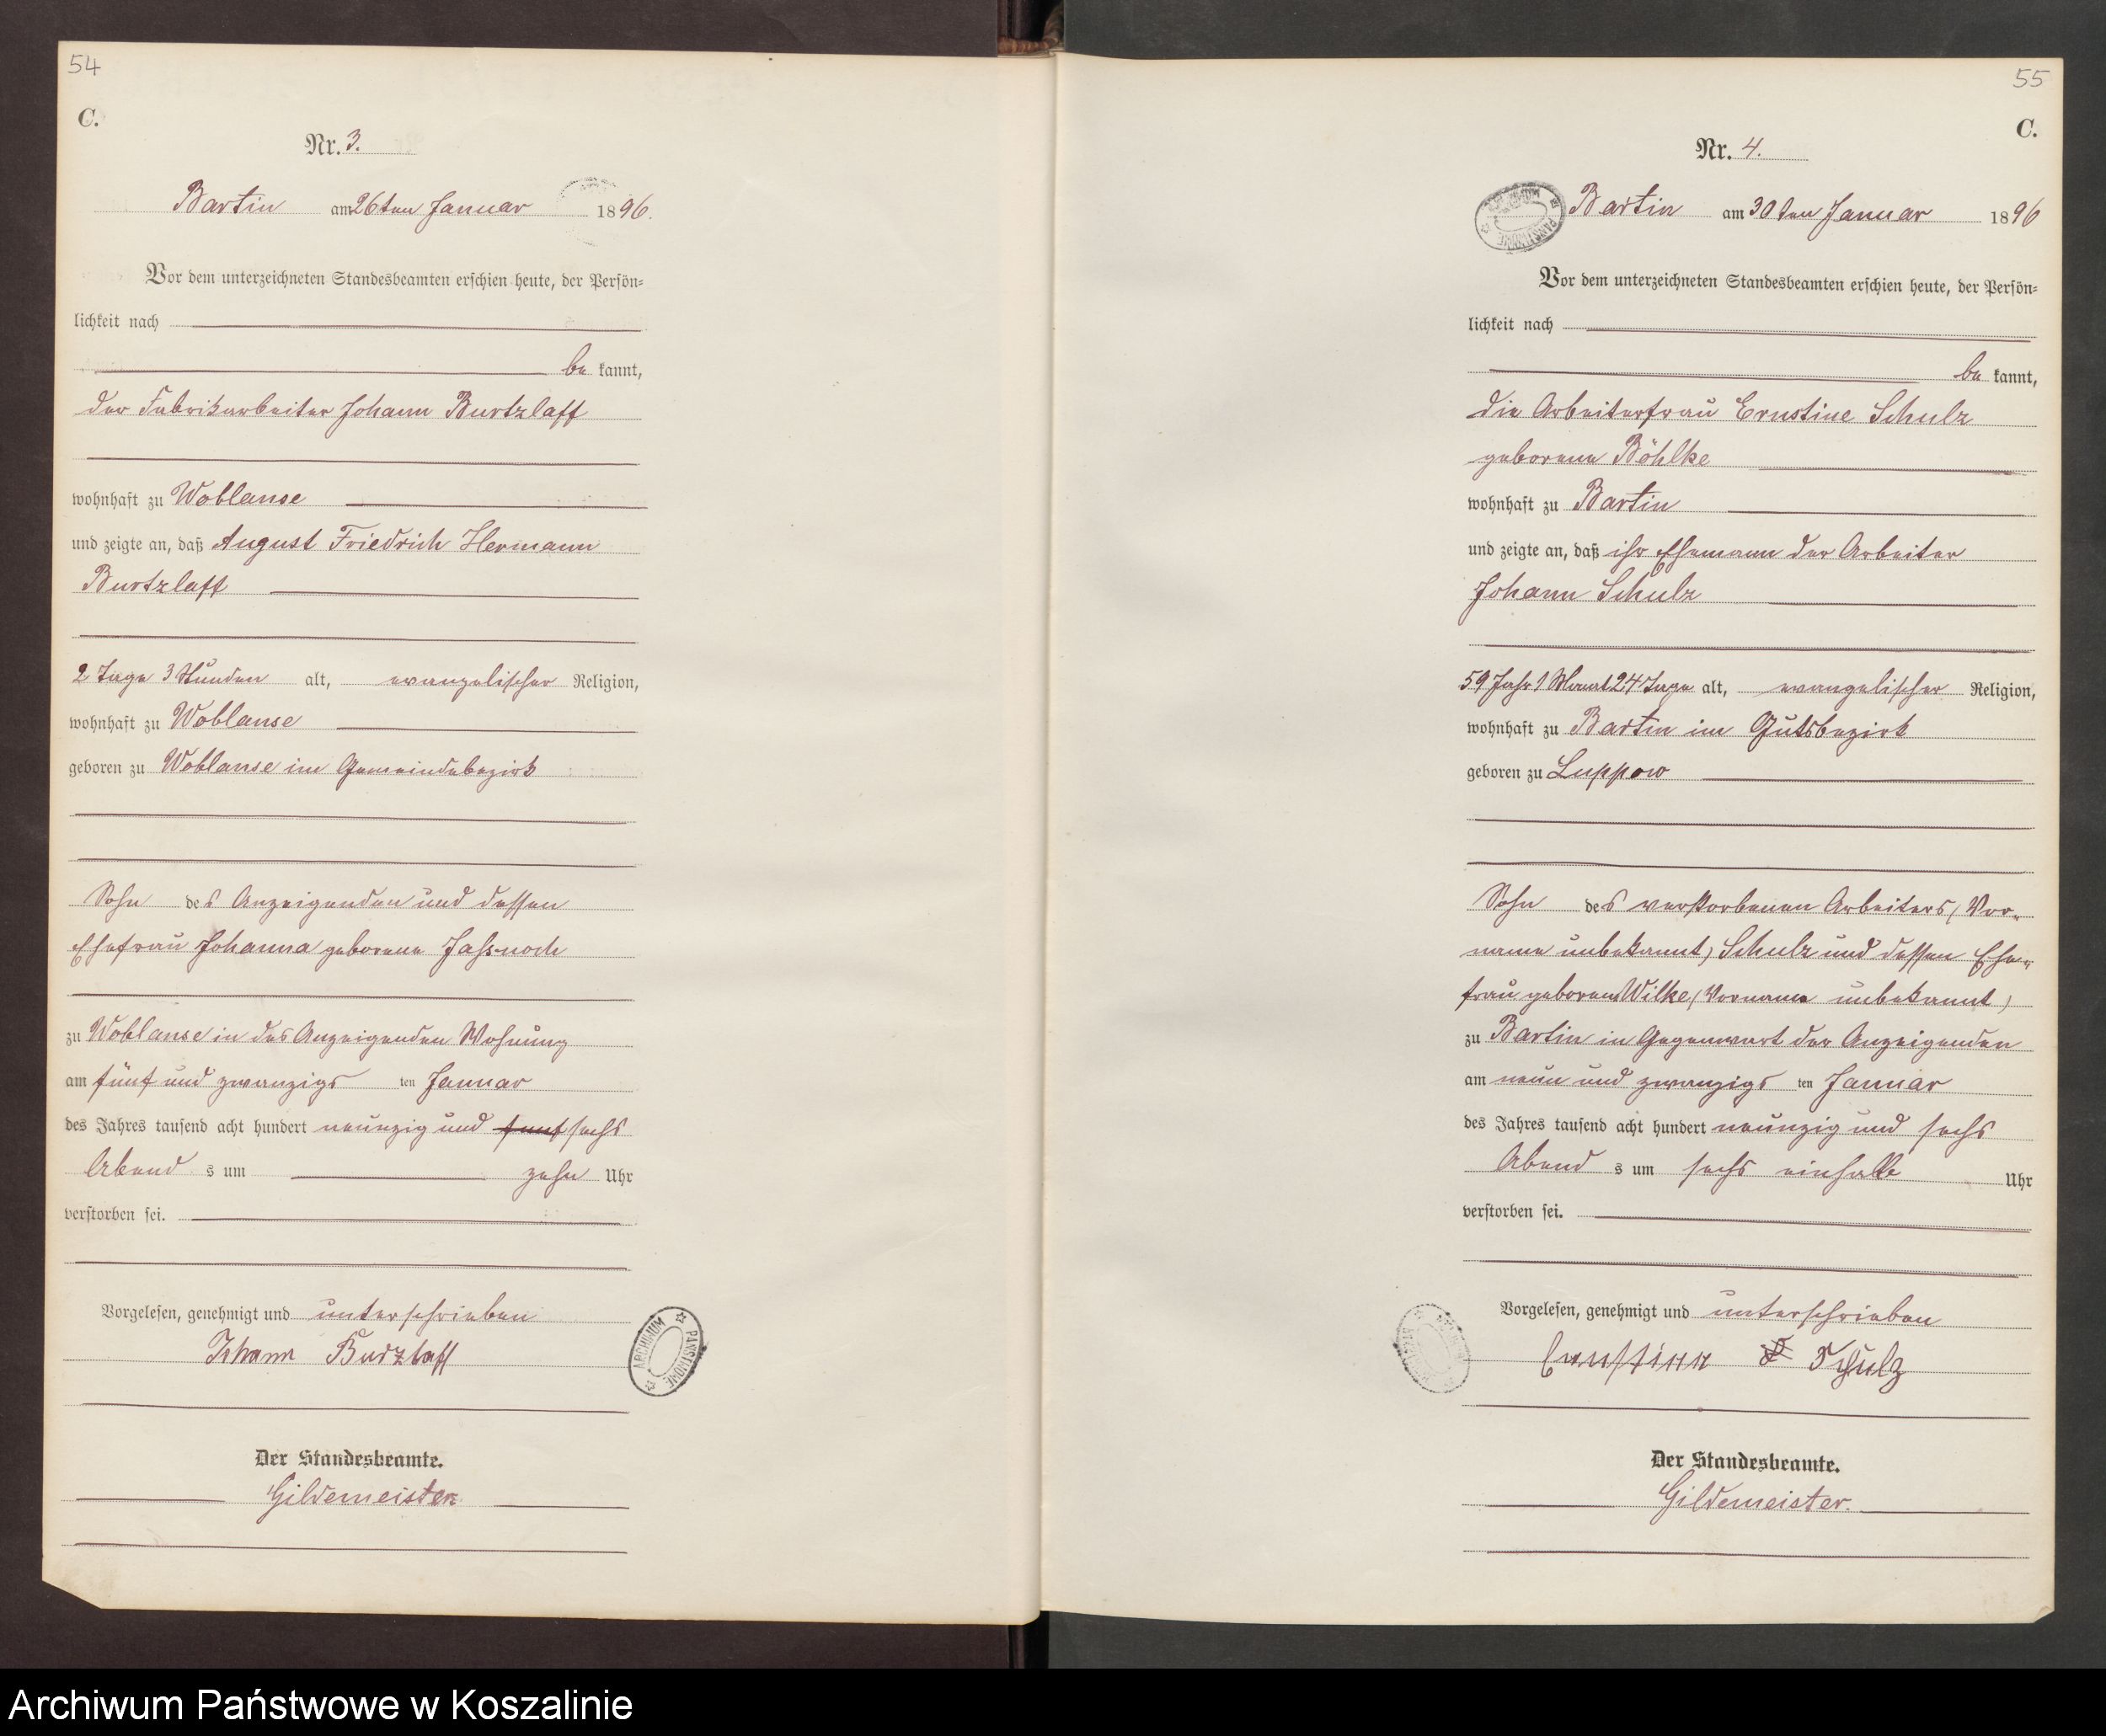 54
C.
Nr. 3.
Bartin am 26ten Januar 1896.
Vor dem unterzeichneten Standesbeamten erschien heute, der Persön-
lichkeit nach
be kannt,
der Fabrikarbeiter Johann Burtzlaff
wohnhaft zu Woblanse
und zeigte an, daß August Friedrich Hermann
Burtzlaff
2 Tage 3 Stunden alt, evangelischer Religion,
wohnhaft zu Woblanse
geboren zu Woblanse im Gemeindebezirk
Sohn des Anzeigenden und dessen
Ehefrau Johanna geborene Jassnoch
zu Woblanse in des Anzeigenden Wohnung
am fünf und zwanzigs ten Januar
des Jahres tausend acht hundert neunzig und fünf sechs
Abend s um zehn Uhr
verstorben sei.
Vorgelesen, genehmigt und unterschrieben
Johann Burzlaff
Der Standesbeamte.
Gildemeister
ARCHIWUM PAŃSTWOWE
55
C.
Nr. 4.
Bartin am 30ten Januar 1896
Vor dem unterzeichneten Standesbeamten erschien heute, der Persön-
lichkeit nach
be kannt,
die Arbeiterfrau Ernstine Schulz
geborene Böhlke
wohnhaft zu Bartin
und zeigte an, daß ihr Ehemann der Arbeiter
Johann Schulz
59 Jahr 1 Monat 24 Tage alt, evangelischer Religion,
wohnhaft zu Bartin im Gutsbezirk
geboren zu Luppow
Sohn des verstorbenen Arbeiters (Vor-
name unbekannt) Schulz und dessen Ehe-
frau geborene Wilke (Vorname unbekannt)
zu Bartin in Gegenwart der Anzeigenden
am neun und zwanzigs ten Januar
des Jahres tausend acht hundert neunzig und sechs
Abend s um sechs einhalb Uhr
verstorben sei.
Vorgelesen, genehmigt und unterschrieben
Ernstine Schulz
Der Standesbeamte.
Gildemeister.
Archiwum Państwowe w Koszalinie